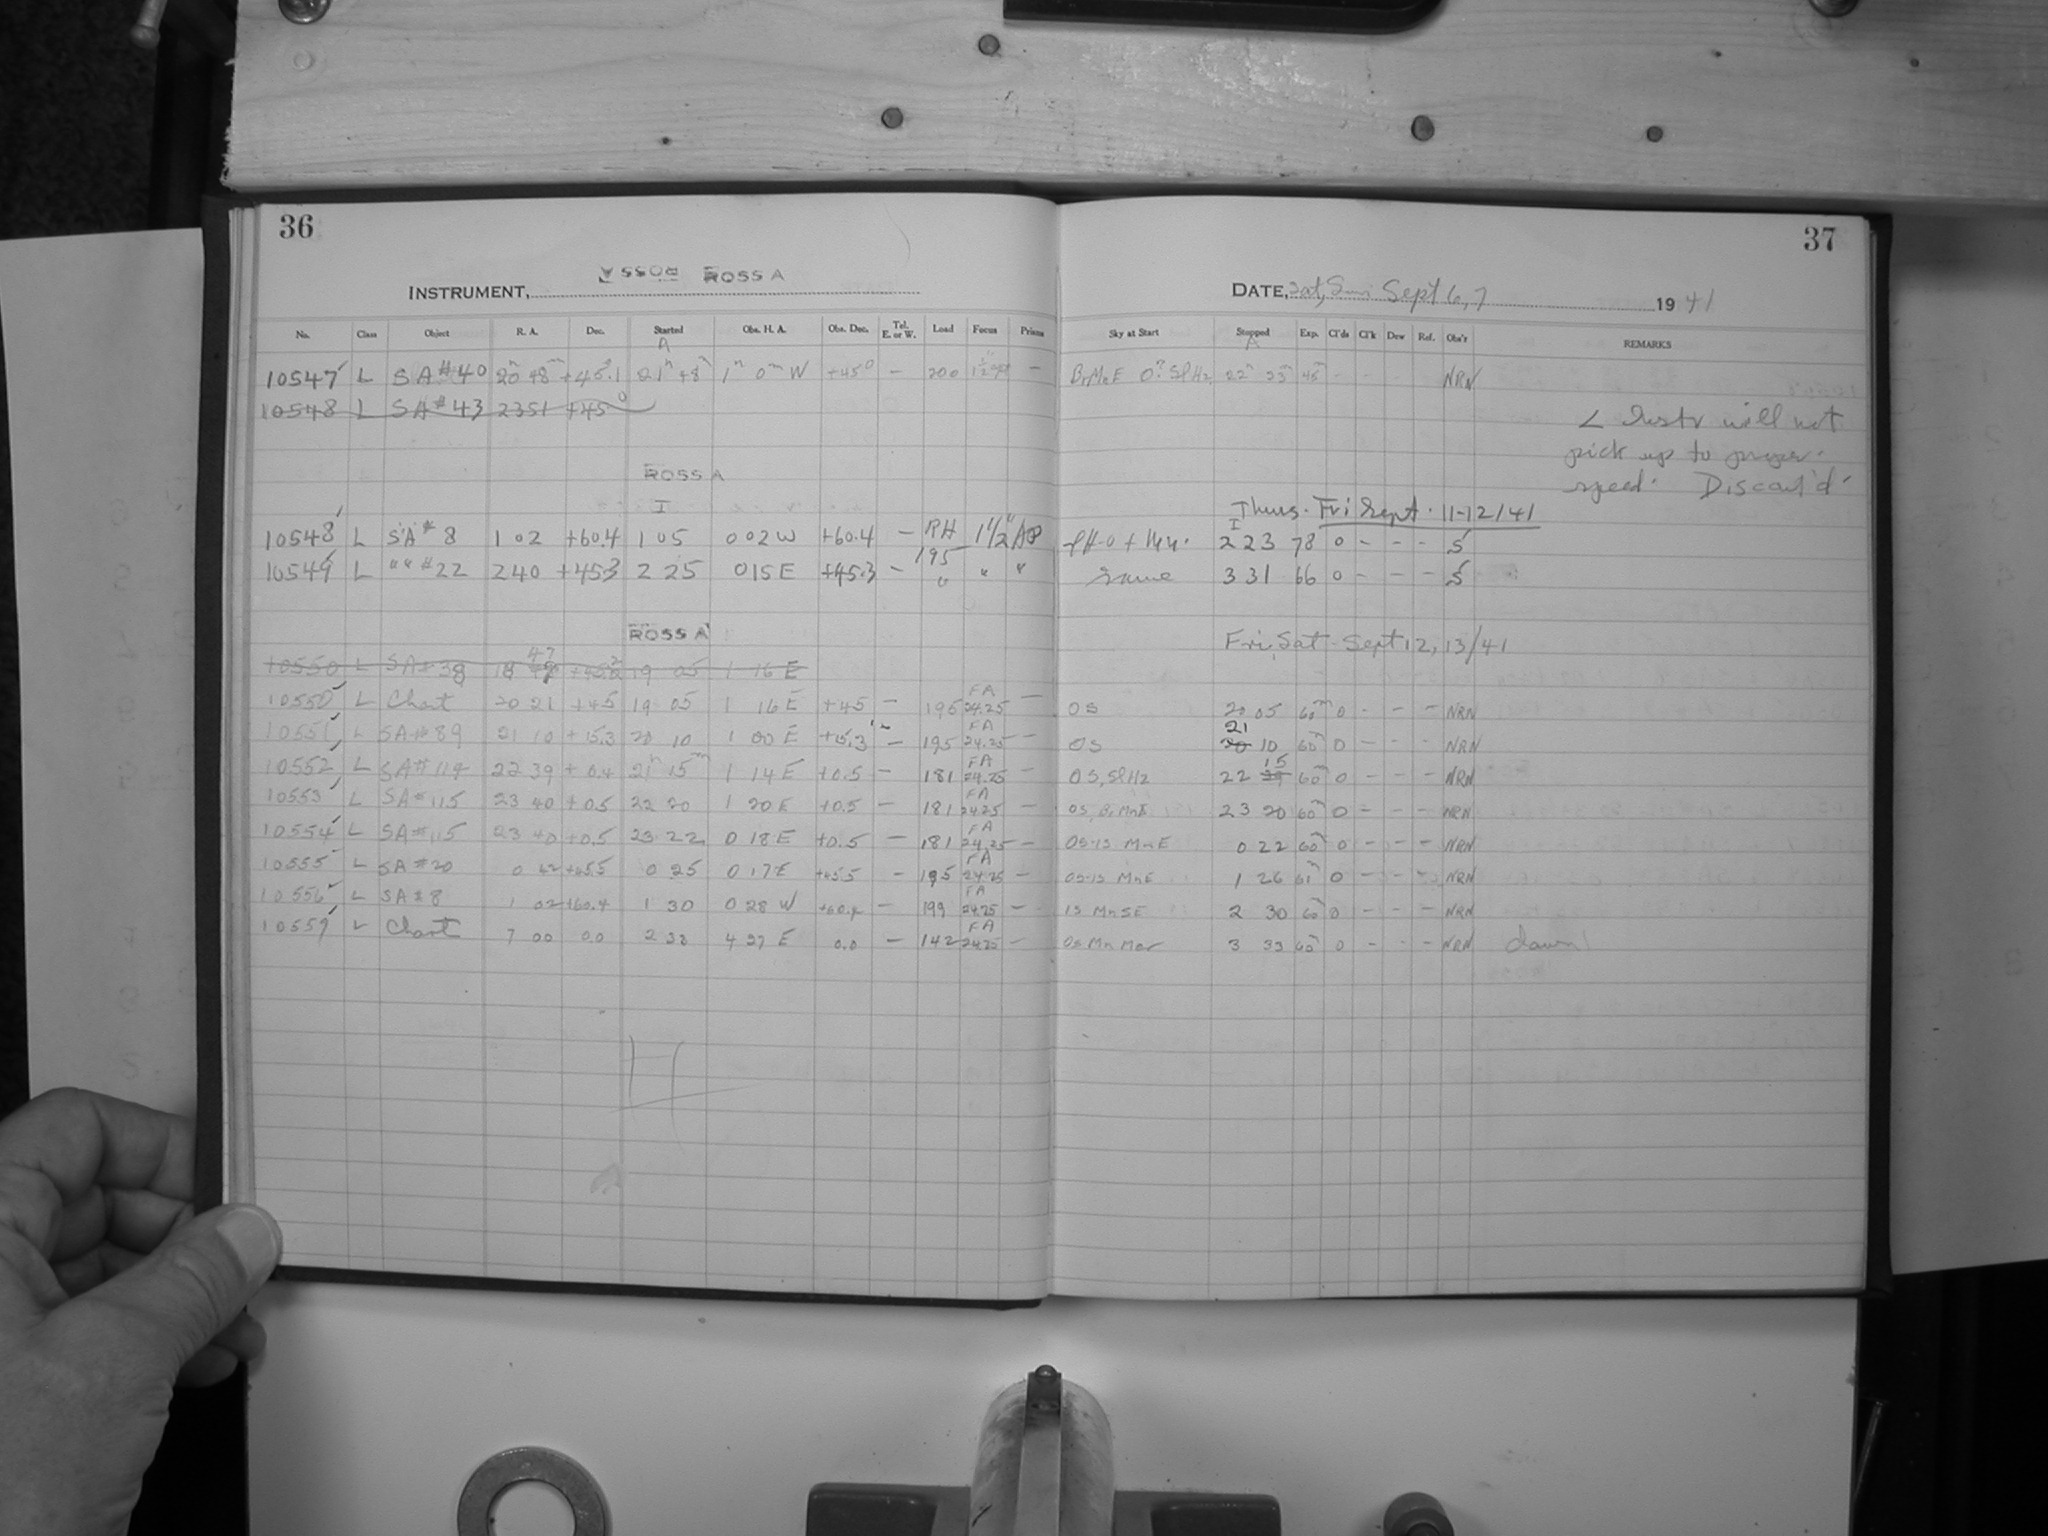 36
37
INSTRUMENT, ROSS A ROSS A
DATE, Sat, Sun Sept 6, 7 1941
No. Class Object R. A. Dec. Started Obs. H. A. Obs. Dec. Tel. E. or W. Load Focus Prisms Sky at Start Stopped Exp. Cl'ds Cl'k Dew Ref. Obs'r REMARKS
A A
10547 L SA#40 20h 48m +45.1 21h 48m 1h 0m W +45° - 200 - Br Mn E 0? Sl Hz 22h 33m 45m - - - NRN
10548 L SA#43 2351 +45°
L Instr will not
pick up to proper
speed. Discard'd
ROSS A
I
Thurs. Fri Sept. 11-12/41
I
10548 L SA#8 1 02 +60.4 1 05 0 02 W +60.4 - RH 195 1 1/2" 2 23 78 0 - - - S
10549 L " " #22 2 40 +45.3 2 25 0 15 E +45.3 - " " " same 3 31 66 0 - - - S
ROSS A
Fri, Sat - Sept 12, 13/41
10550 L SA#38 18 47 19 05 1 16 E
10550 L Chart 20 21 +45 19 05 1 16 E +45 - 195 FA 24.25 - OS 20 05 60m 0 - - - NRN
10551 L SA#89 21 10 +15.3 20 10 1 00 E +15.3 - 195 FA 24.25 - OS 21 10 60m 0 - - - NRN
10552 L SA#114 22 39 +0.4 21h 15m 1 14 E +0.5 - 181 FA 24.25 - OS, Sl Hz 22 15 60m 0 - - - NRN
10553 L SA#115 23 40 +0.5 22 20 1 20 E +0.5 - 181 FA 24.25 - OS, Br Mn E 23 20 60m 0 - - - NRN
10554 L SA#115 23 40 +0.5 23 22 0 18 E +0.5 - 181 FA 24.25 - OS-1S Mn E 0 22 60m 0 - - - NRN
10555 L SA#20 0 42 +45.5 0 25 0 17 E +45.5 - 195 FA 24.25 - OS-1S Mn E 1 26 61m 0 - - - NRN
10556 L SA#8 1 02 +60.4 1 30 0 28 W +60.4 - 199 FA 24.25 - 1S Mn SE 2 30 60m 0 - - - NRN
10557 L Chart 7 00 0.0 2 33 4 27 E 0.0 - 142 FA 24.25 - OS Mn Mer 3 33 60m 0 - - - NRN dawn!